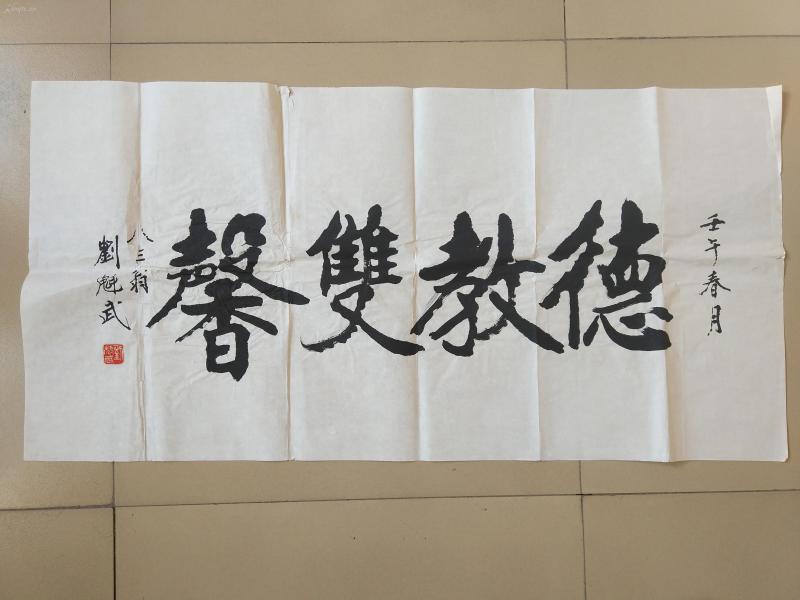 壬午春月
德教雙馨
八三翁
劉魁武